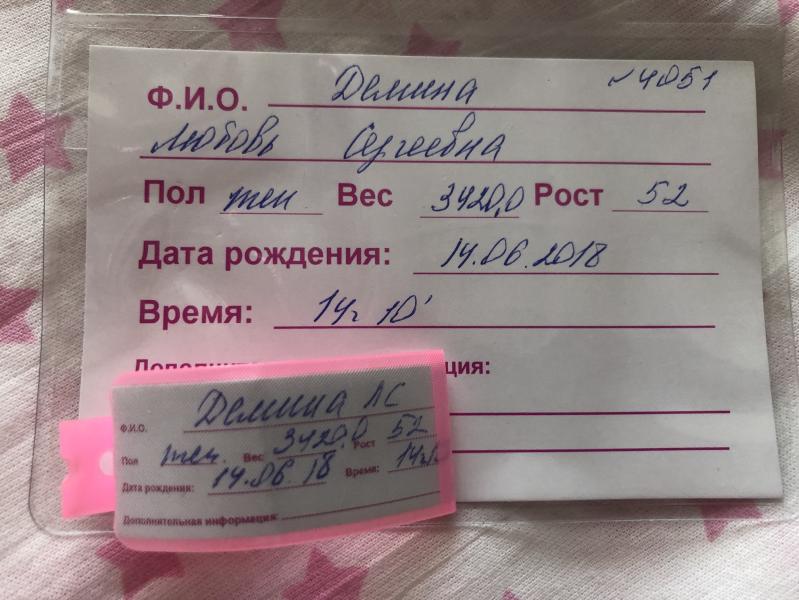 Ф.И.О. Демина №4851
Любовь Сергеевна
Пол жен Вес 3420,0 Рост 52
Дата рождения: 14.06.2018
Время: 14ч 10'
Дополнит ция:
Ф.И.О. Демина ЛС
Пол жен. Вес 3420,0 Рост 52
Дата рождения: 14.06.18 Время: 14ч1
Дополнительная информация: